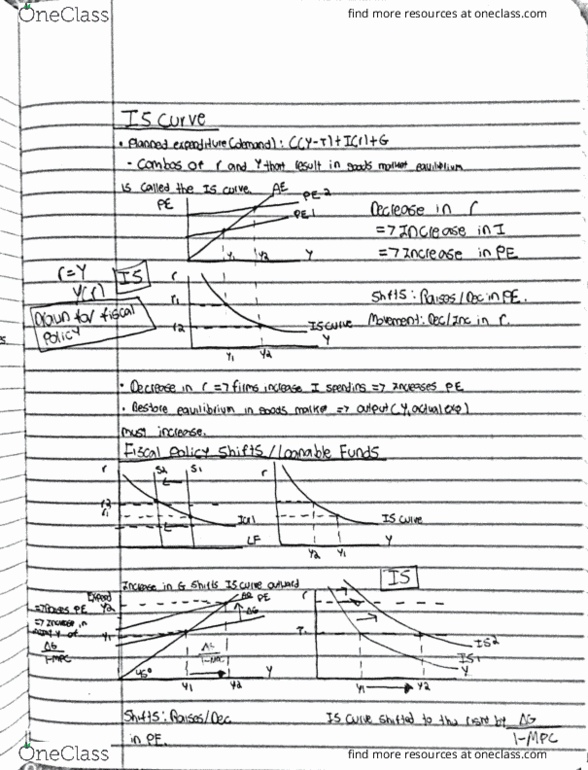 OneClass
find more resources at oneclass.com
IS curve
• Planned expenditure (demand): C(Y-T)+I(r)+G
- Combos of r and Y that result in goods market equilibrium
is called the IS curve.
AE
PE
PE2
PE1
Y1 Y2 Y
Decrease in r
=> Increase in I
=> Increase in PE
r=Y
Y(r)
IS
Drawn for fiscal
policy
r
r1
r2
IS curve
Y1 Y2 Y
Shifts: Raises/Dec in PE.
Movement: Dec/Inc in r.
• Decrease in r => firms increase I spending => increases PE
• Restore equilibrium in goods market => output (Y, actual exp)
must increase.
Fiscal Policy Shifts/Loanable Funds
r S2 S1
r2
r1
I(r)
LF
r
IS curve
Y2 Y1 Y
Increase in G shifts IS curve outward
IS
Expend
=> Raises PE
Y2
=> Increase in
Y1
of
ΔG
1-MPC
PE
ΔG
45°
ΔG
1-MPC
Y1 Y2 Y
r
IS2
IS1
Y
Y1 Y2
Shifts: Raises/Dec
in PE.
IS curve shifted to the right by ΔG
1-MPC
OneClass
find more resources at oneclass.com